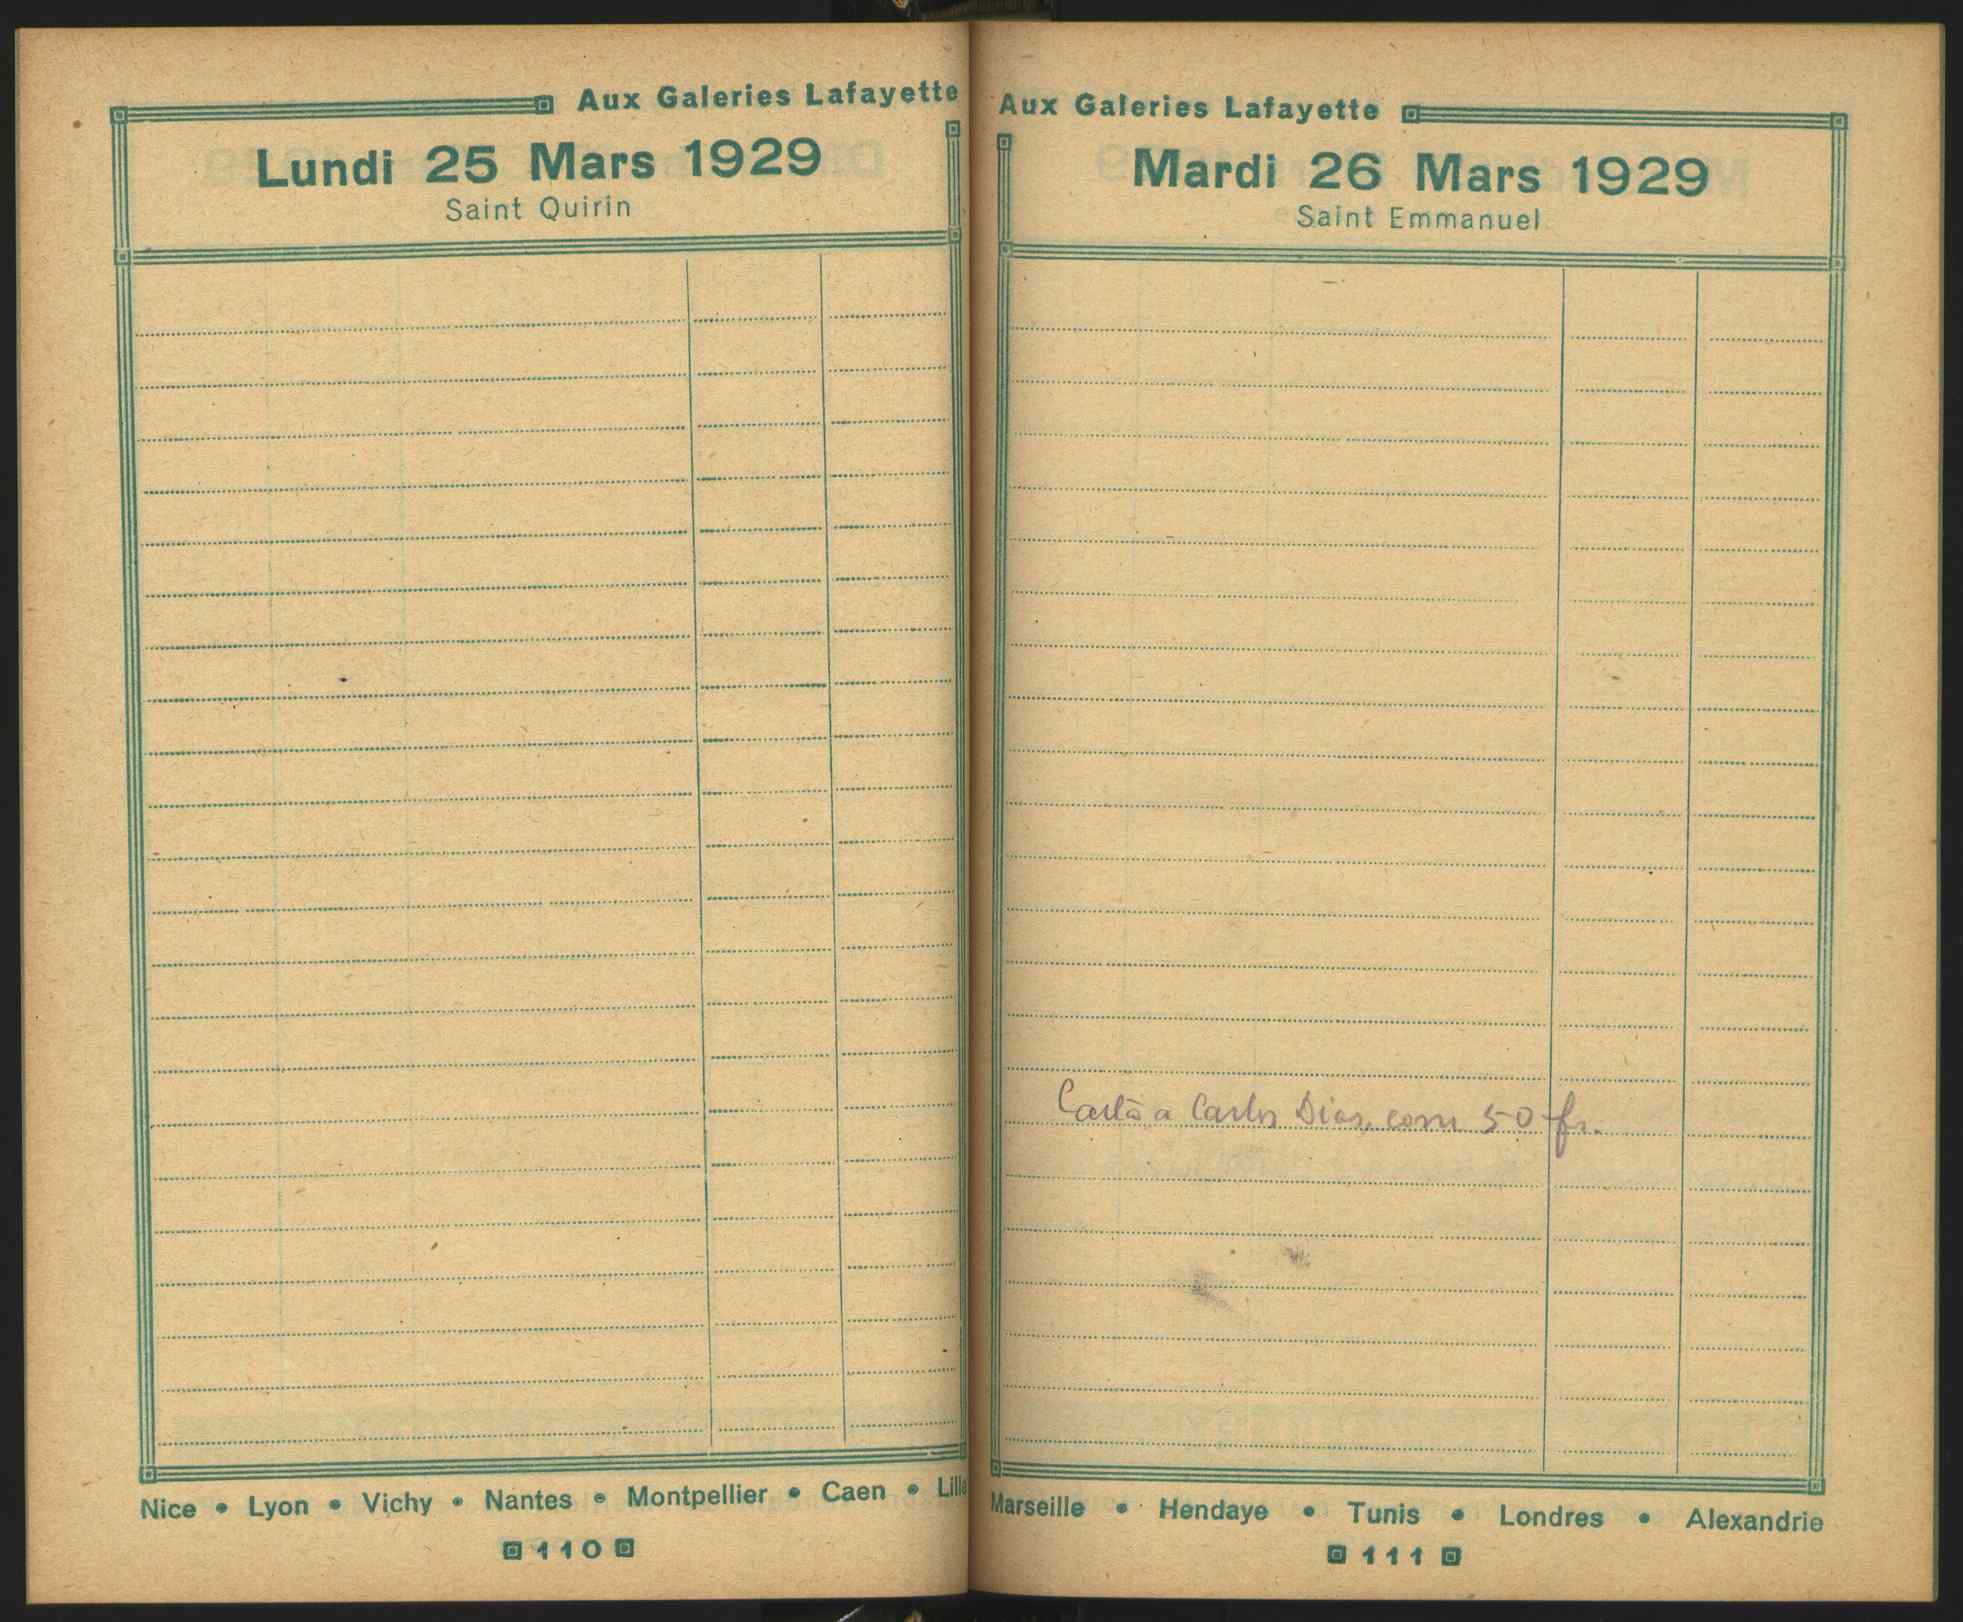 Aux Galeries Lafayette
Lundi 25 Mars 1929
Saint Quirin
Nice • Lyon • Vichy • Nantes • Montpellier • Caen • Lille
110
Aux Galeries Lafayette
Mardi 26 Mars 1929
Saint Emmanuel
Carta a Carlos Dias, com 50 fr.
Marseille • Hendaye • Tunis • Londres • Alexandrie
111